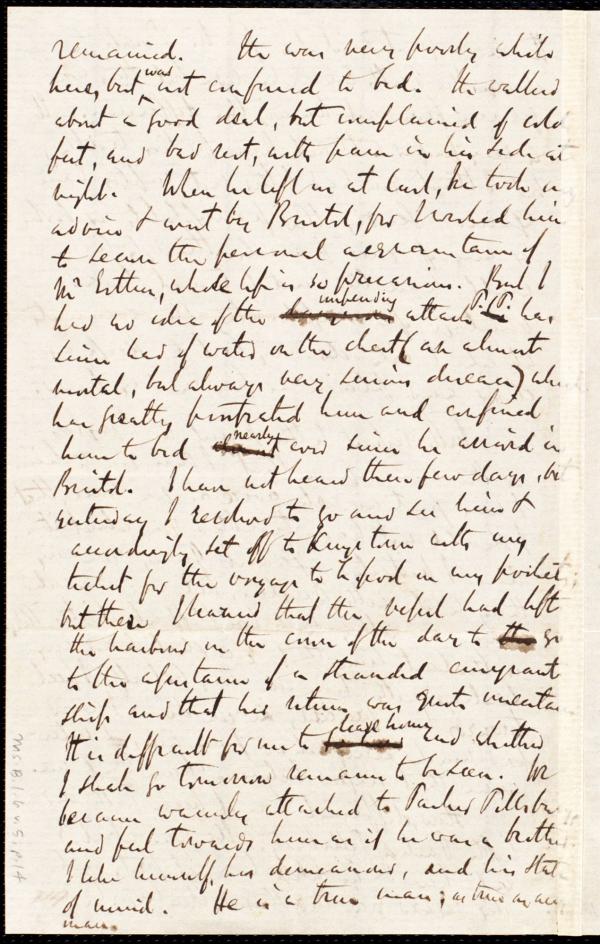 remained. He was very poorly while
here, but was not confined to bed. He walked
about a good deal, but complained of cold
feet, and bad rest, with pain in his side at
night. When he left us at last, he took
advice & went by Bristol, for I wished him
to secure the personal acquaintance of
Mr Estlin, whose life is so precarious. But I
had no idea of the impending attack P. P. has
since had of water on the chest (an almost
mortal, but always very serious disease)
has greatly prostrated him and confined
him to bed nearly ever since he arrived in
Bristol. I have not heard these few days,
yesterday I resolved to go and see him &
accordingly set off to Kingstown with my
ticket for the voyage to Lpool in my pocket;
but there I learned that the vessel had left
the harbour in the course of the day to go
to the assistance of a stranded emigrant
ship and that her return was quite
It is difficult for me to leave home and whether
I shall go tomorrow remains to be seen. We
became warmly attached to Parker
and feel towards him as if he was a brother.
I like himself, his demeanour, and his
of mind. He is a true man; as true as any
man.